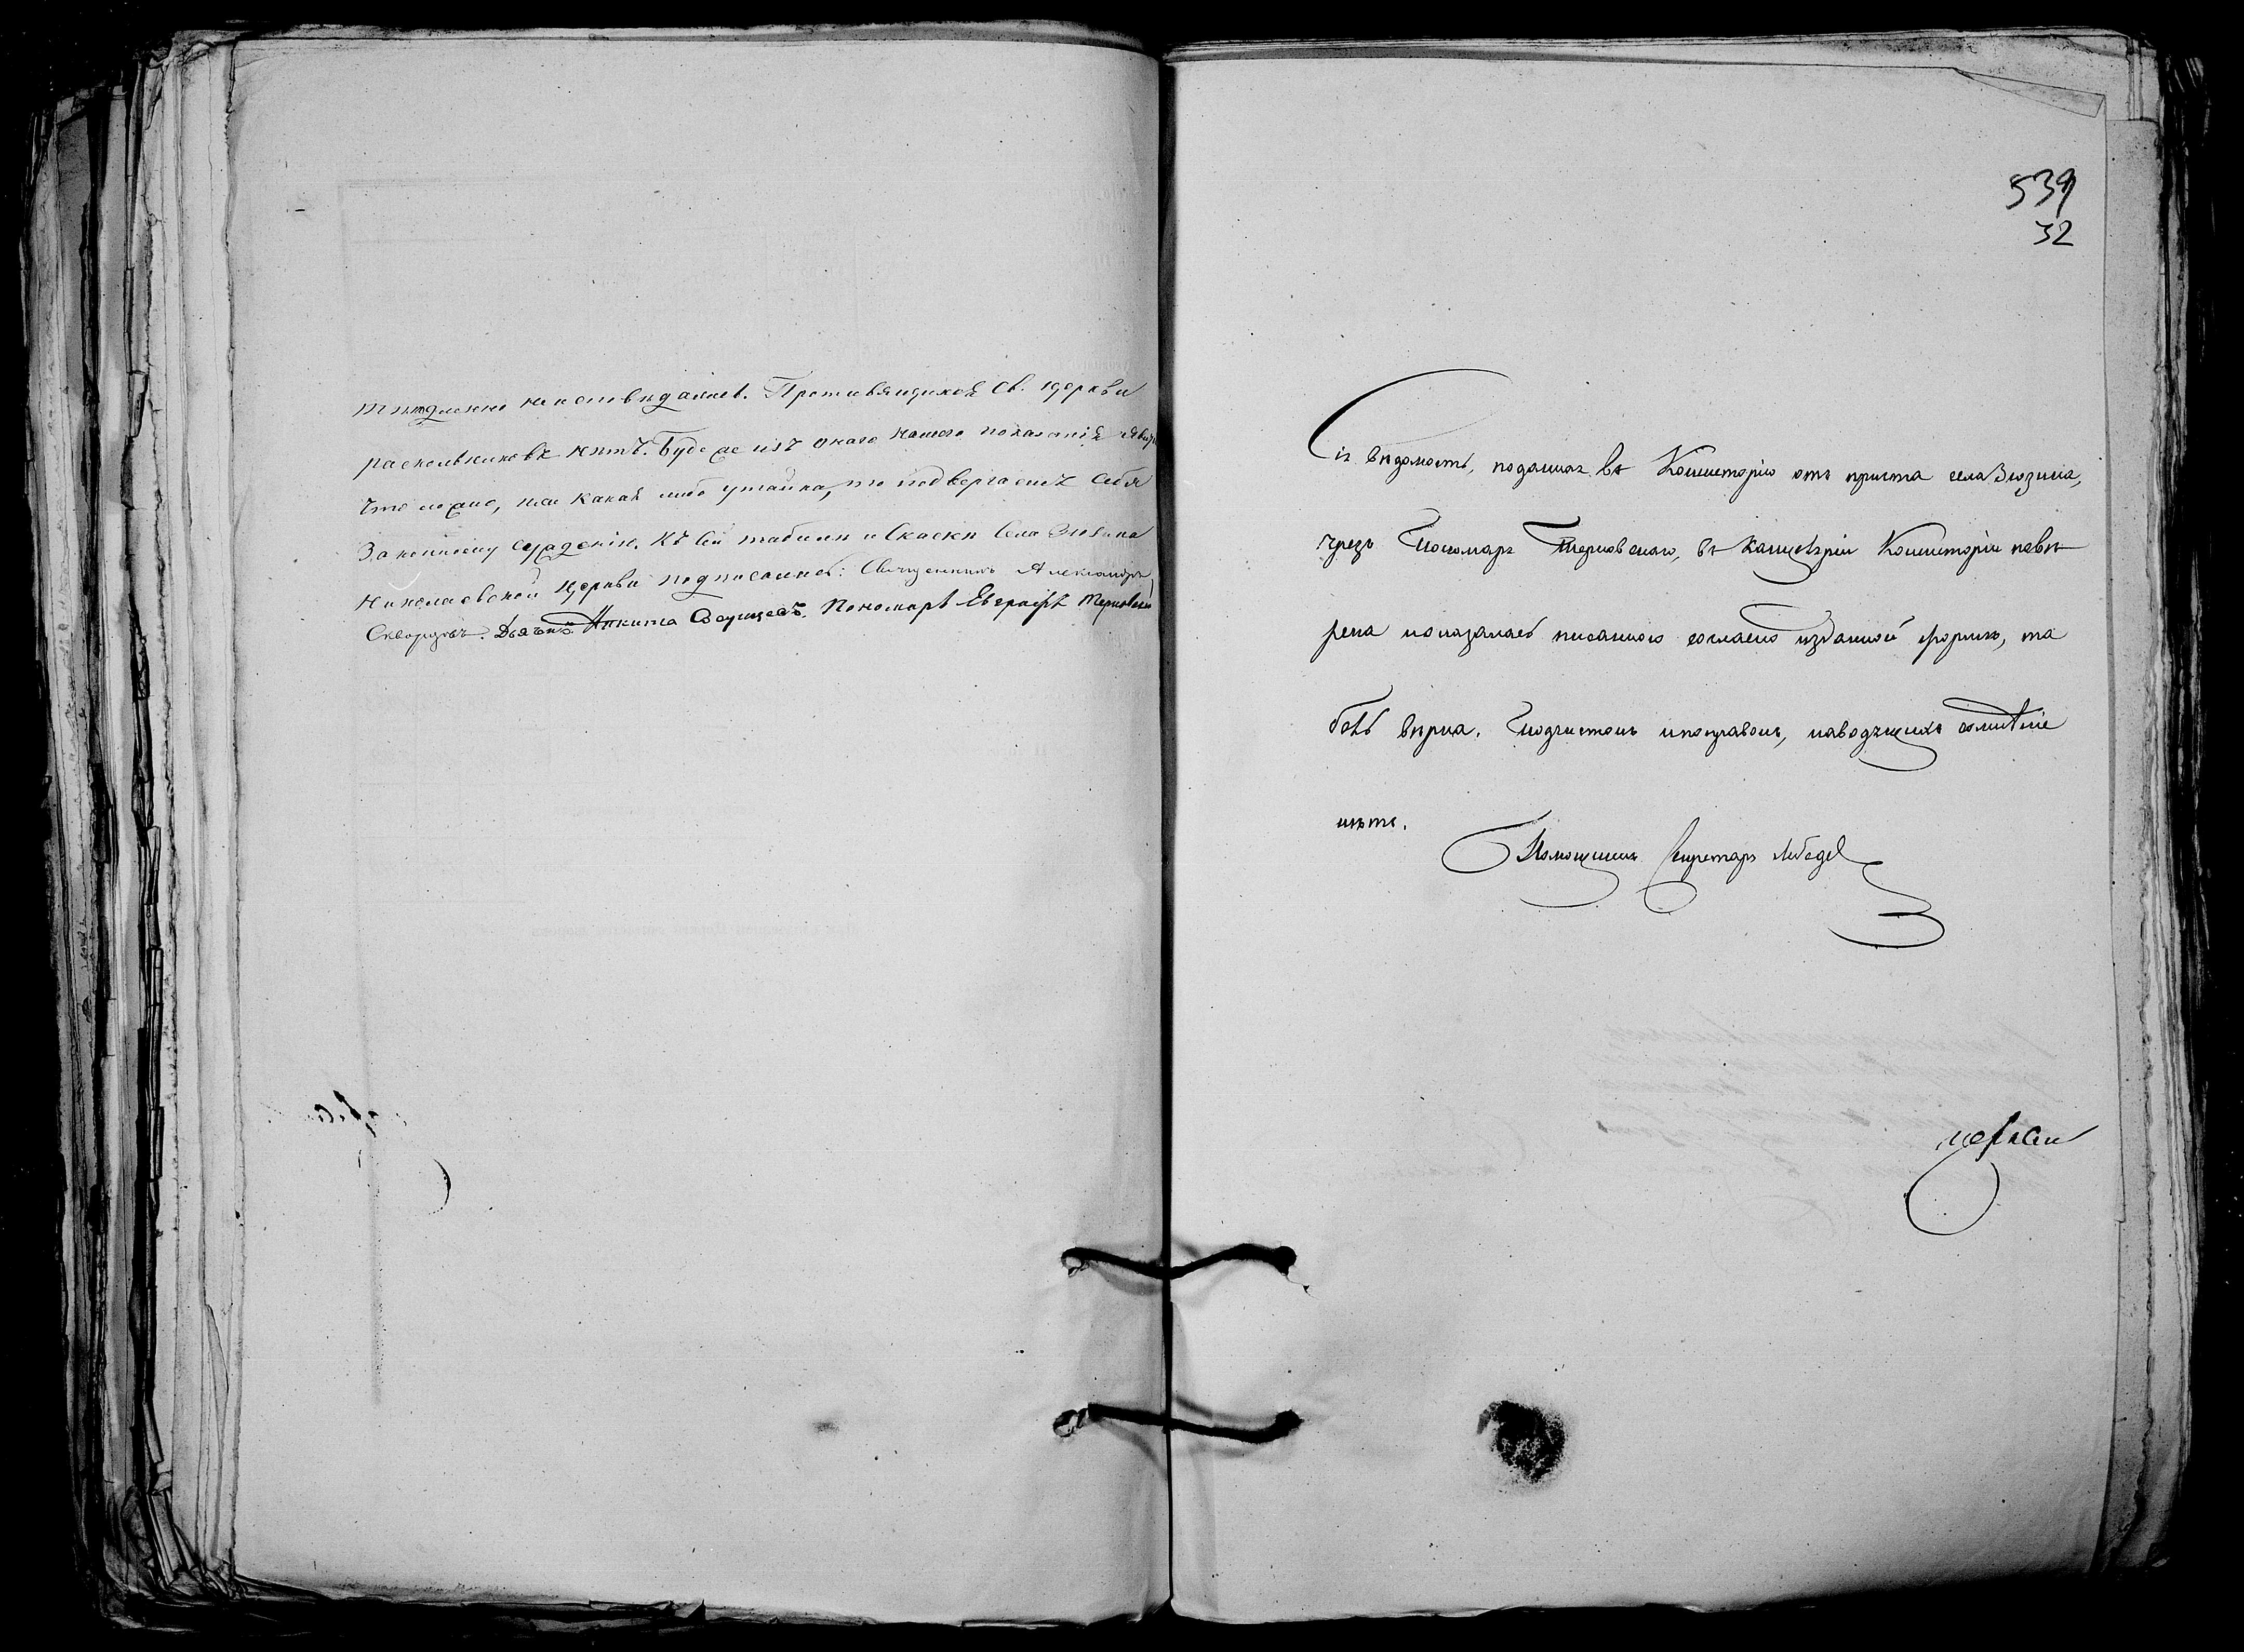 тщеленно не исповидались. Противящихся Св. церкви
раскольников нѣтъ. Буде же изъ онаго нашего показанія явит
что ложно, или какая либо утайка, то подвергаемъ себя
Законному сужденію. Къ сей табели и Скаски Села Зюзина
Николаевской церкви подписались: Священникъ Александръ
Скворцовъ. Дьячекъ Никита Пономарь Евграфъ Терновскій
539
32
Сія вѣдомость, поданная въ Консисторію отъ причта села Зюзина,
чрезъ Пономаря Терновскаго, въ Канцеляріи Консисторіи повѣ
рена и оказалась писанною согласно изданной формѣ, та
бель вѣрна. Подчистокъ и поправокъ, наводящихъ сомнѣніе
нѣтъ.
Помощникъ Секретаря Лебедев